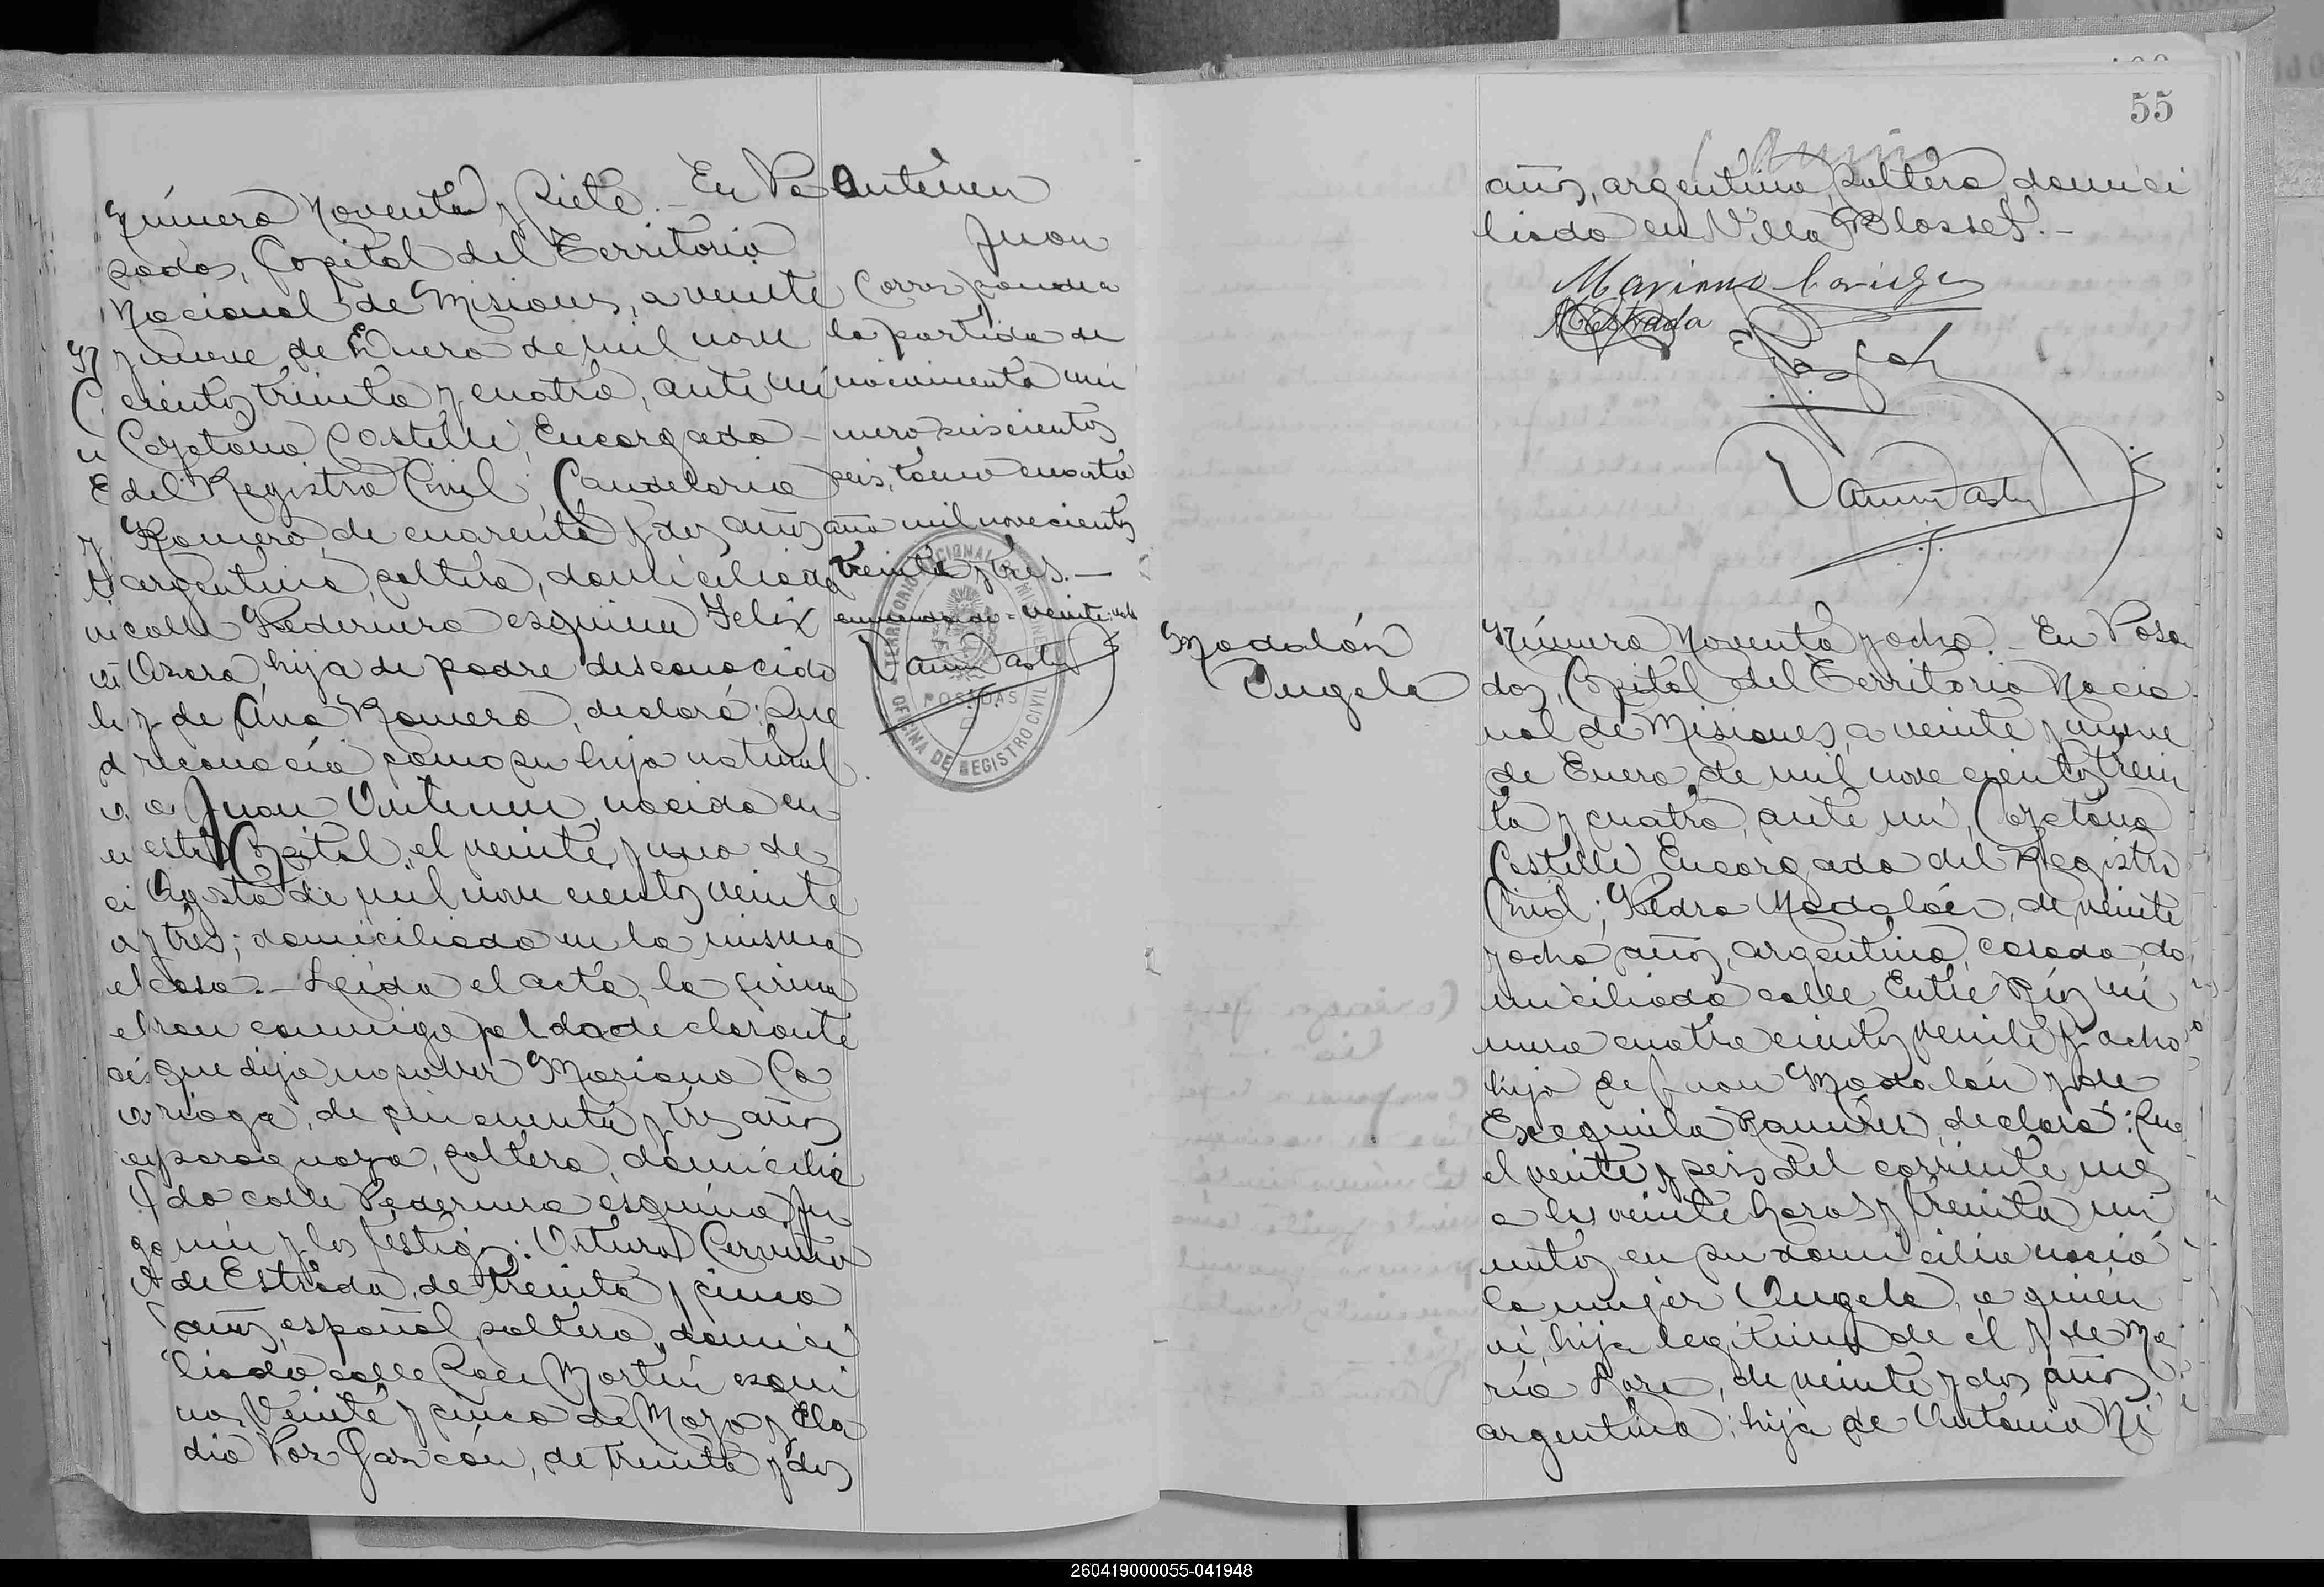 Número Noventa y Siete.- En Po
sadas, Capital del Territorio
Nacional de Misiones, a veinte
y nueve de Enero de mil nove
cientos treinta y cuatro, ante mí
Cayetano Castelli, Encargado
del Registro Civil; Candelaria
Romero, de cuarenta y dos años
argentina, soltera, domiciliada
calle Pedernera esquina Felix
Azara, hija de padre desconocido
y de Ana Romero, declaró: Que
reconocía como su hijo natural
a Juan Antenen, nacido en
esta Capital, el veinte y uno de
Agosto de mil nove cientos veinte
y tres; domiciliado en la misma
casa.- Leída el acta, la firma
ron conmigo por la declarante
que dijo no saber Mariano Ca
riaga, de cincuenta y tres años
paraguayo, soltero, domicilia
do calle Pedernera esquina Ju
y los testigos: Arturo
de Estrada, de treinta y cinco
años, español, soltero, domici
liado calle San Martín esqui
na Veinte y cinco de Mayo y Ela
dio Paz Garzón, de treinta y dos
Antenen
Juan
Corresponde a
la partida de
nacimiento nú
mero seiscientos
seis, tomo cuarto
año mil novecientos
treinta y tres.-
enmendado = veinte
TERRITORIO NACIONAL DE MISIONES
POSADAS
OFICINA DE REGISTRO CIVIL
55
años, argentino, soltero, domici
liado en Villa Blosset.-
Mariano Cariaga
AdeEstrada
Número Noventa y ocho.- En Posa
das, Capital del Territorio Nacio
nal de Misiones, a veinte y nueve
de Enero de mil nove cientos trein
ta y cuatro, ante mí, Cayetano
Castelli Encargado del Registro
Civil; Pedro Madalón, de veinte
y ocho años, argentino, casado, do
miciliado calle Entre Ríos nú
mero cuatro cientos veinte y ocho
hijo de Juan Madalón y de
Exequiela Ramírez, declaró: Que
el veinte y seis del corriente mes
a las veinte horas y treinta mi
nutos, en su domicilio nació
la mujer Angela, a quien
vi, hija legítima de él y de Ma
ría, de veinte y dos años,
argentina; hija de Antonio
Madalón
Angela
260419000055-041948